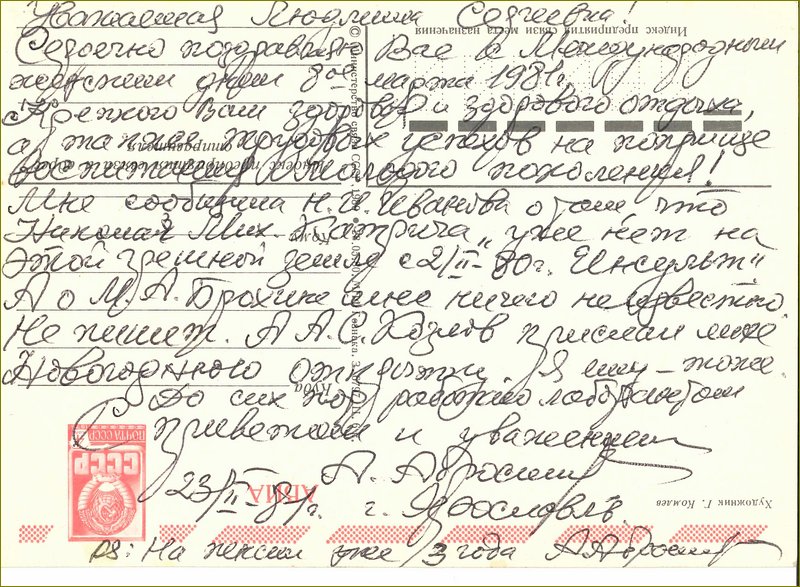 Уважаемая Людмила Сергеевна!
Сердечно поздравляю Вас с Международным
женским днем 8ое марта 1981г.
Крепкого Вам здоровья и здорового отдыха,
а также трудовых успехов на поприще
воспитания молодого поколения!
Мне сообщила Н.И. Иванова о том, что
Николая Мих. уже нет на
этой грешной земле с 2/II-80г. Инсульт"
А о М.А. мне ничего не известно.
Не пишет. А А.С. Козлов прислал мне
Новогоднюю открытку. Я ему - тоже
До сих пор работаю лаборантом
С приветом и уважением
А.
23/II-81г. г. Ярославль
PS: На пенсии уже 3 года
Индекс предприятия связи места назначения
© Министерство связи СССР
Индекс предприятия связи и адрес
отправителя
Кому
Куда
АВИА
ПОЧТА СССР
СССР
Художник Г. Комлев